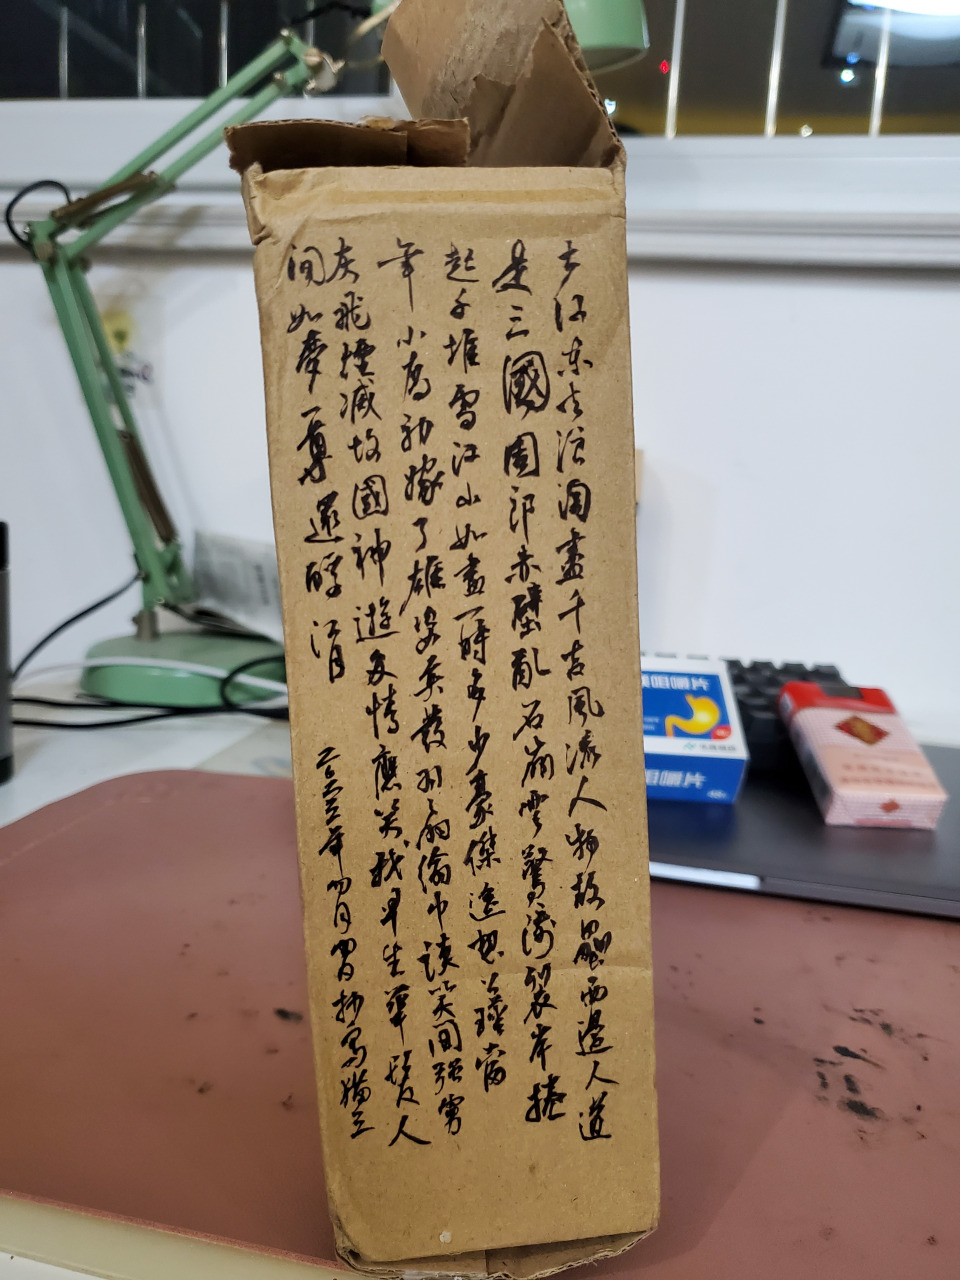 大江东去浪淘盡千古風流人物故壘西邊人道
是三國周郎赤壁亂石崩雲驚濤裂岸捲
起千堆雪江山如畫一時多少豪傑遙想公瑾當
年小喬初嫁了雄姿英發羽扇綸巾談笑間強虜
灰飛煙滅故國神遊多情應笑我早生華髮人
間如夢一尊還酹江月
年四月四日抄寫
咀嚼片
咀嚼片